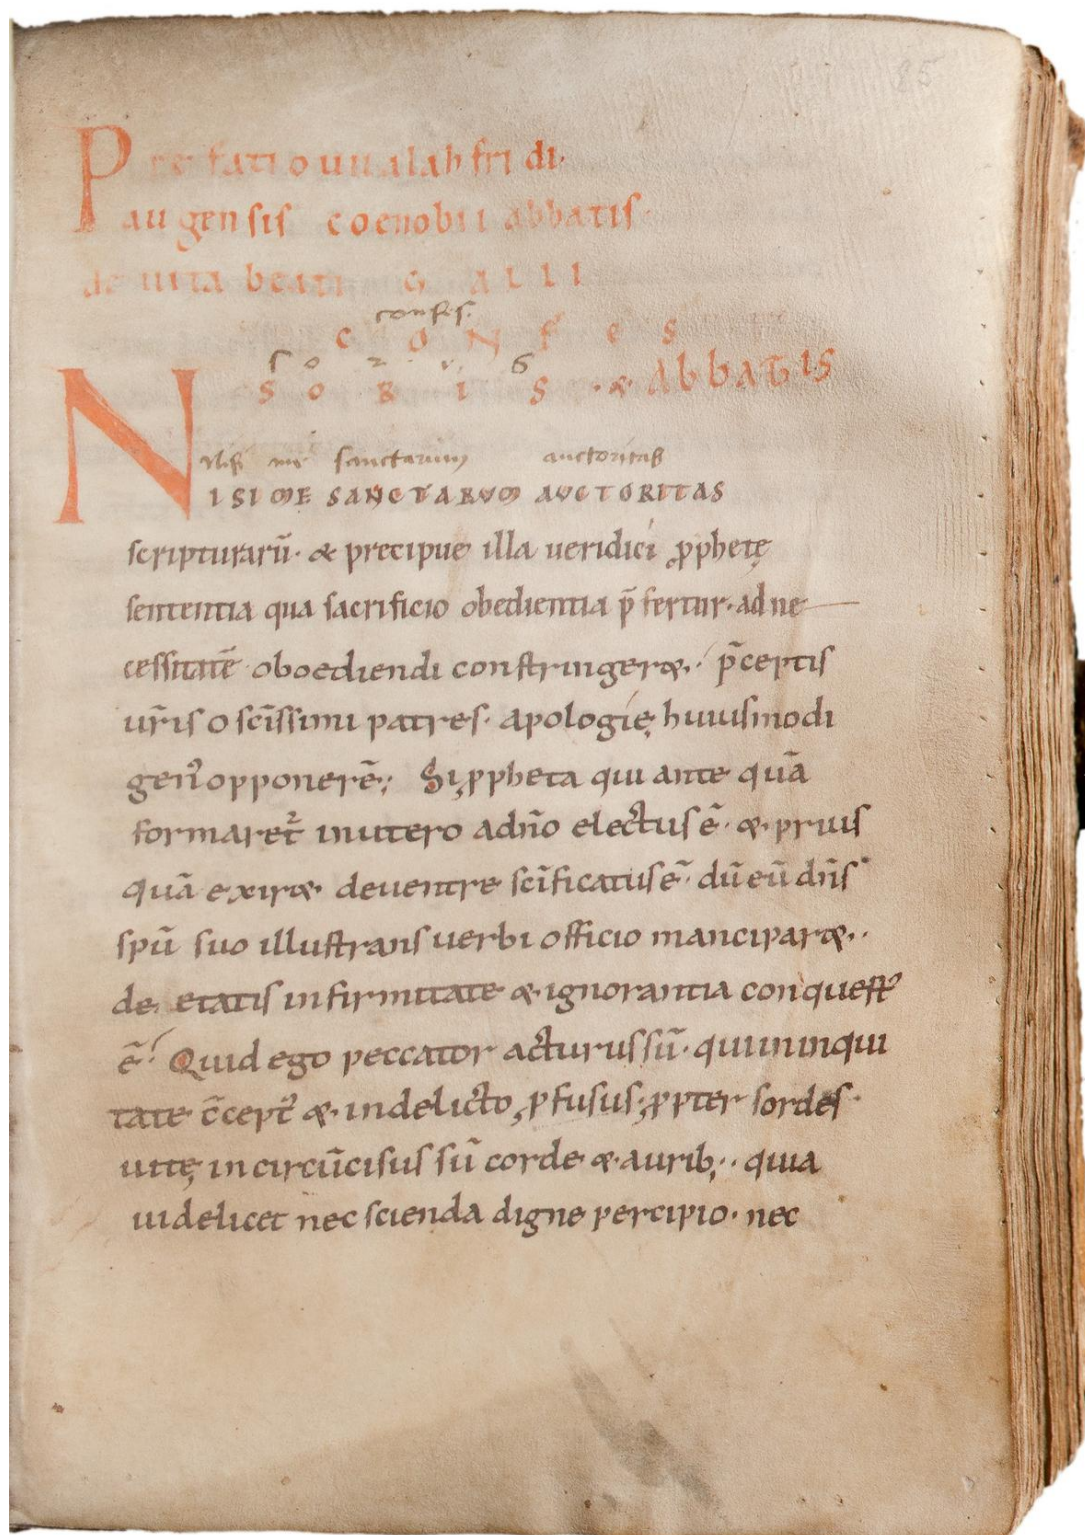 85
Prefatio uualahfridi·
augensis coenobii abbatis·
de uita beati GALLI
confes.
CONFES
soris
SORIS · & ABBATIS
Nisi me sanctarum auctoritas
NISI ME SANCTARUM AUCTORITAS
scripturarū· & precipue illa ueridici ꝓphetę
sententia qua sacrificio obedientia p̄fertur· ad ne
cessitatē oboediendi constringeret·· p̄ceptis
ur̄is o sc̄issimi patres· apologię huiusmodi
genꝰ opponerē·; Si ꝓpheta qui ante quā
formaret᷑ in utero a dn̄o electus ē· & prius
quā exiret de uentre sc̄ificatus ē· dū eū dn̄s
spū suo illustrans uerbi officio manciparet··
de etatis infirmitate & ignorantia conquestꝰ
ē· Quid ego peccator acturus sū· qui in inqui
tate c̄ceptꝰ & in delicto ꝓfusus· ꝓpter sordes
uitę incircūcisus sū corde & aurib;·· quia
uidelicet nec scienda digne percipio· nec